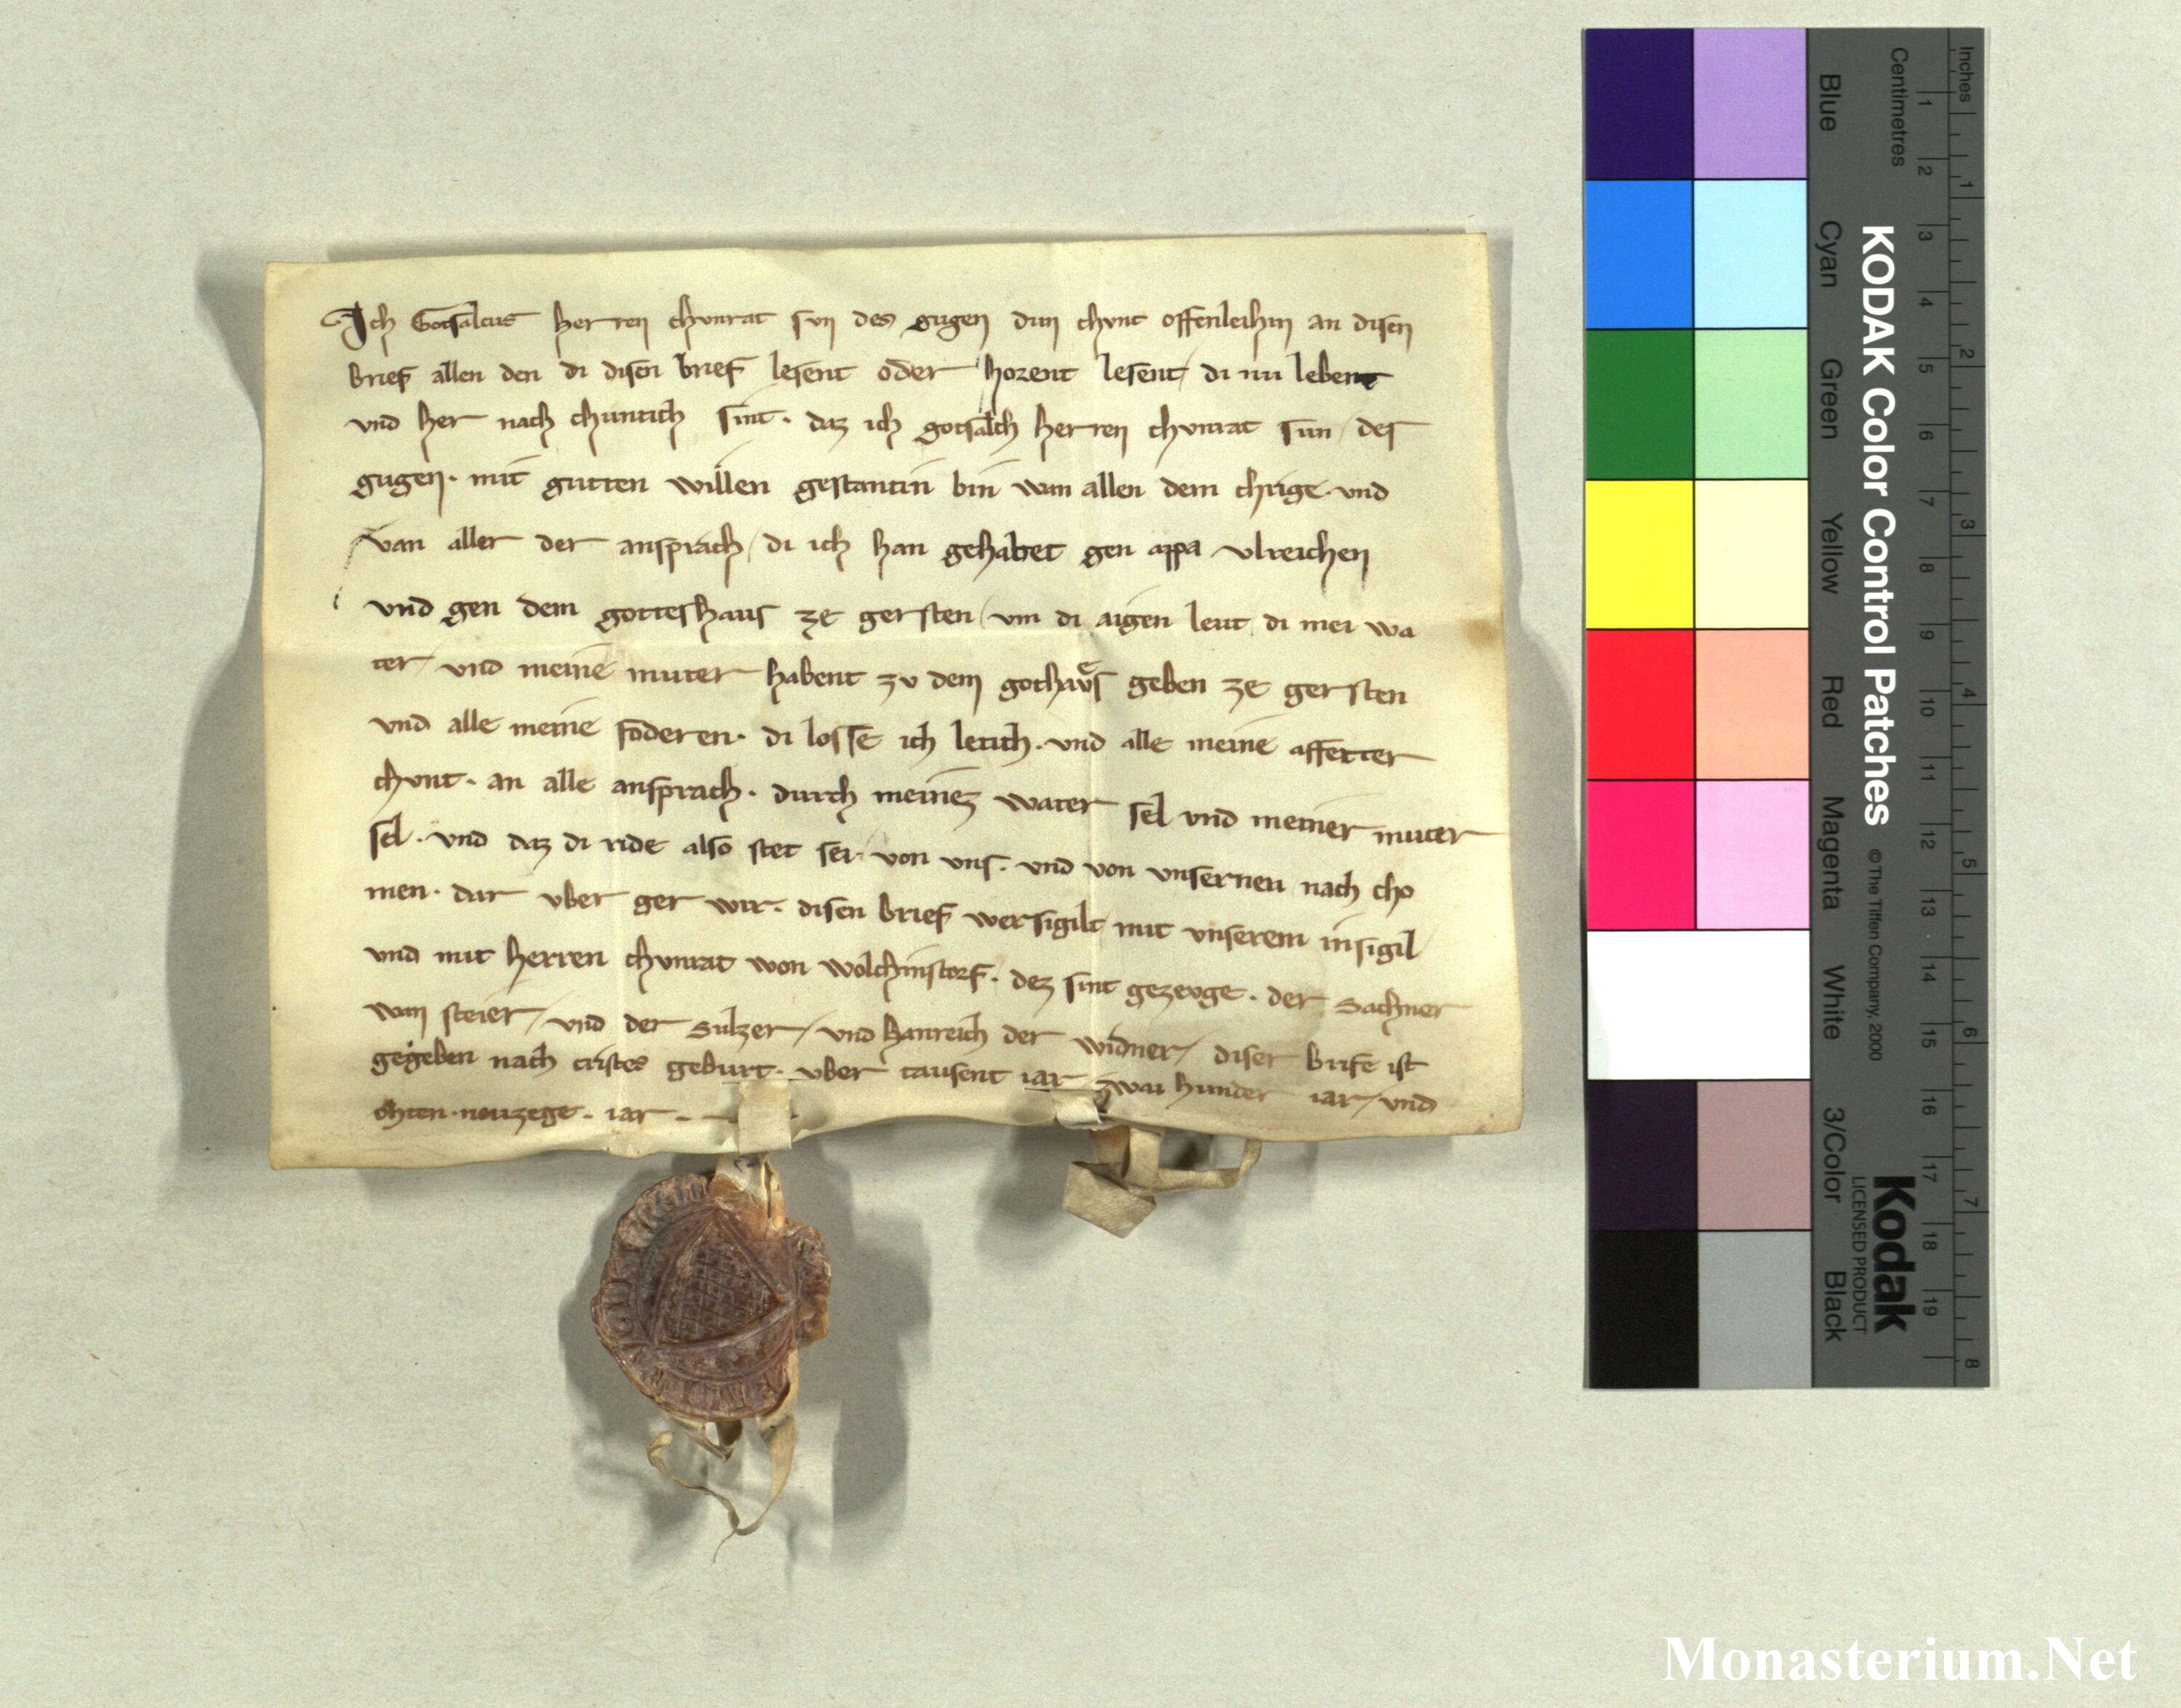 Ich Gotsalcus herren chunrat sun des gugen dun chunt offenleihin an disen
brief allen den di disen brief lesent oder horent lesent di nu lebent
und her nach chuntich sint. daz ich gotsalch herren chunrat sun des
gugen. mit gutten willen gestantin bin wan allen dem chrige. und
van aller der ansprach di ich han gehabet gen appa vlreichen
und gen dem gotteshaus ze gersten um di aigen leut di mei wa
ter und meine muter habent zu dem gothaus geben ze gersten
und alle meine foderen. di losse ich letich. und alle meine affetter
chunt. an alle ansprach. durch meinez water sel und meiner muter
sel. und daz di ride also stet sei. von uns. und von unsernen nach cho
men. dar vber ger wir. disen brief wersigilt mit unserem insigil
und mit herren chunrat won wolchinstorf. dez sint gezeuge. der sachner
wan steier und der sulzer und hanreich der widner diser brife ist
gegeben nach cristes geburt. vber tausent iar zwai hunder iar und
ohten. nouzege. iar.
KODAK Color Control Patches
© The Tiffen Company, 2000
Kodak
LICENSED PRODUCT
Inches
1 2 3 4 5 6 7 8
Centimetres
1 2 3 4 5 6 7 8 9 10 11 12 13 14 15 16 17 18 19
Blue
Cyan
Green
Yellow
Red
Magenta
White
3/Color
Black
Monasterium.Net